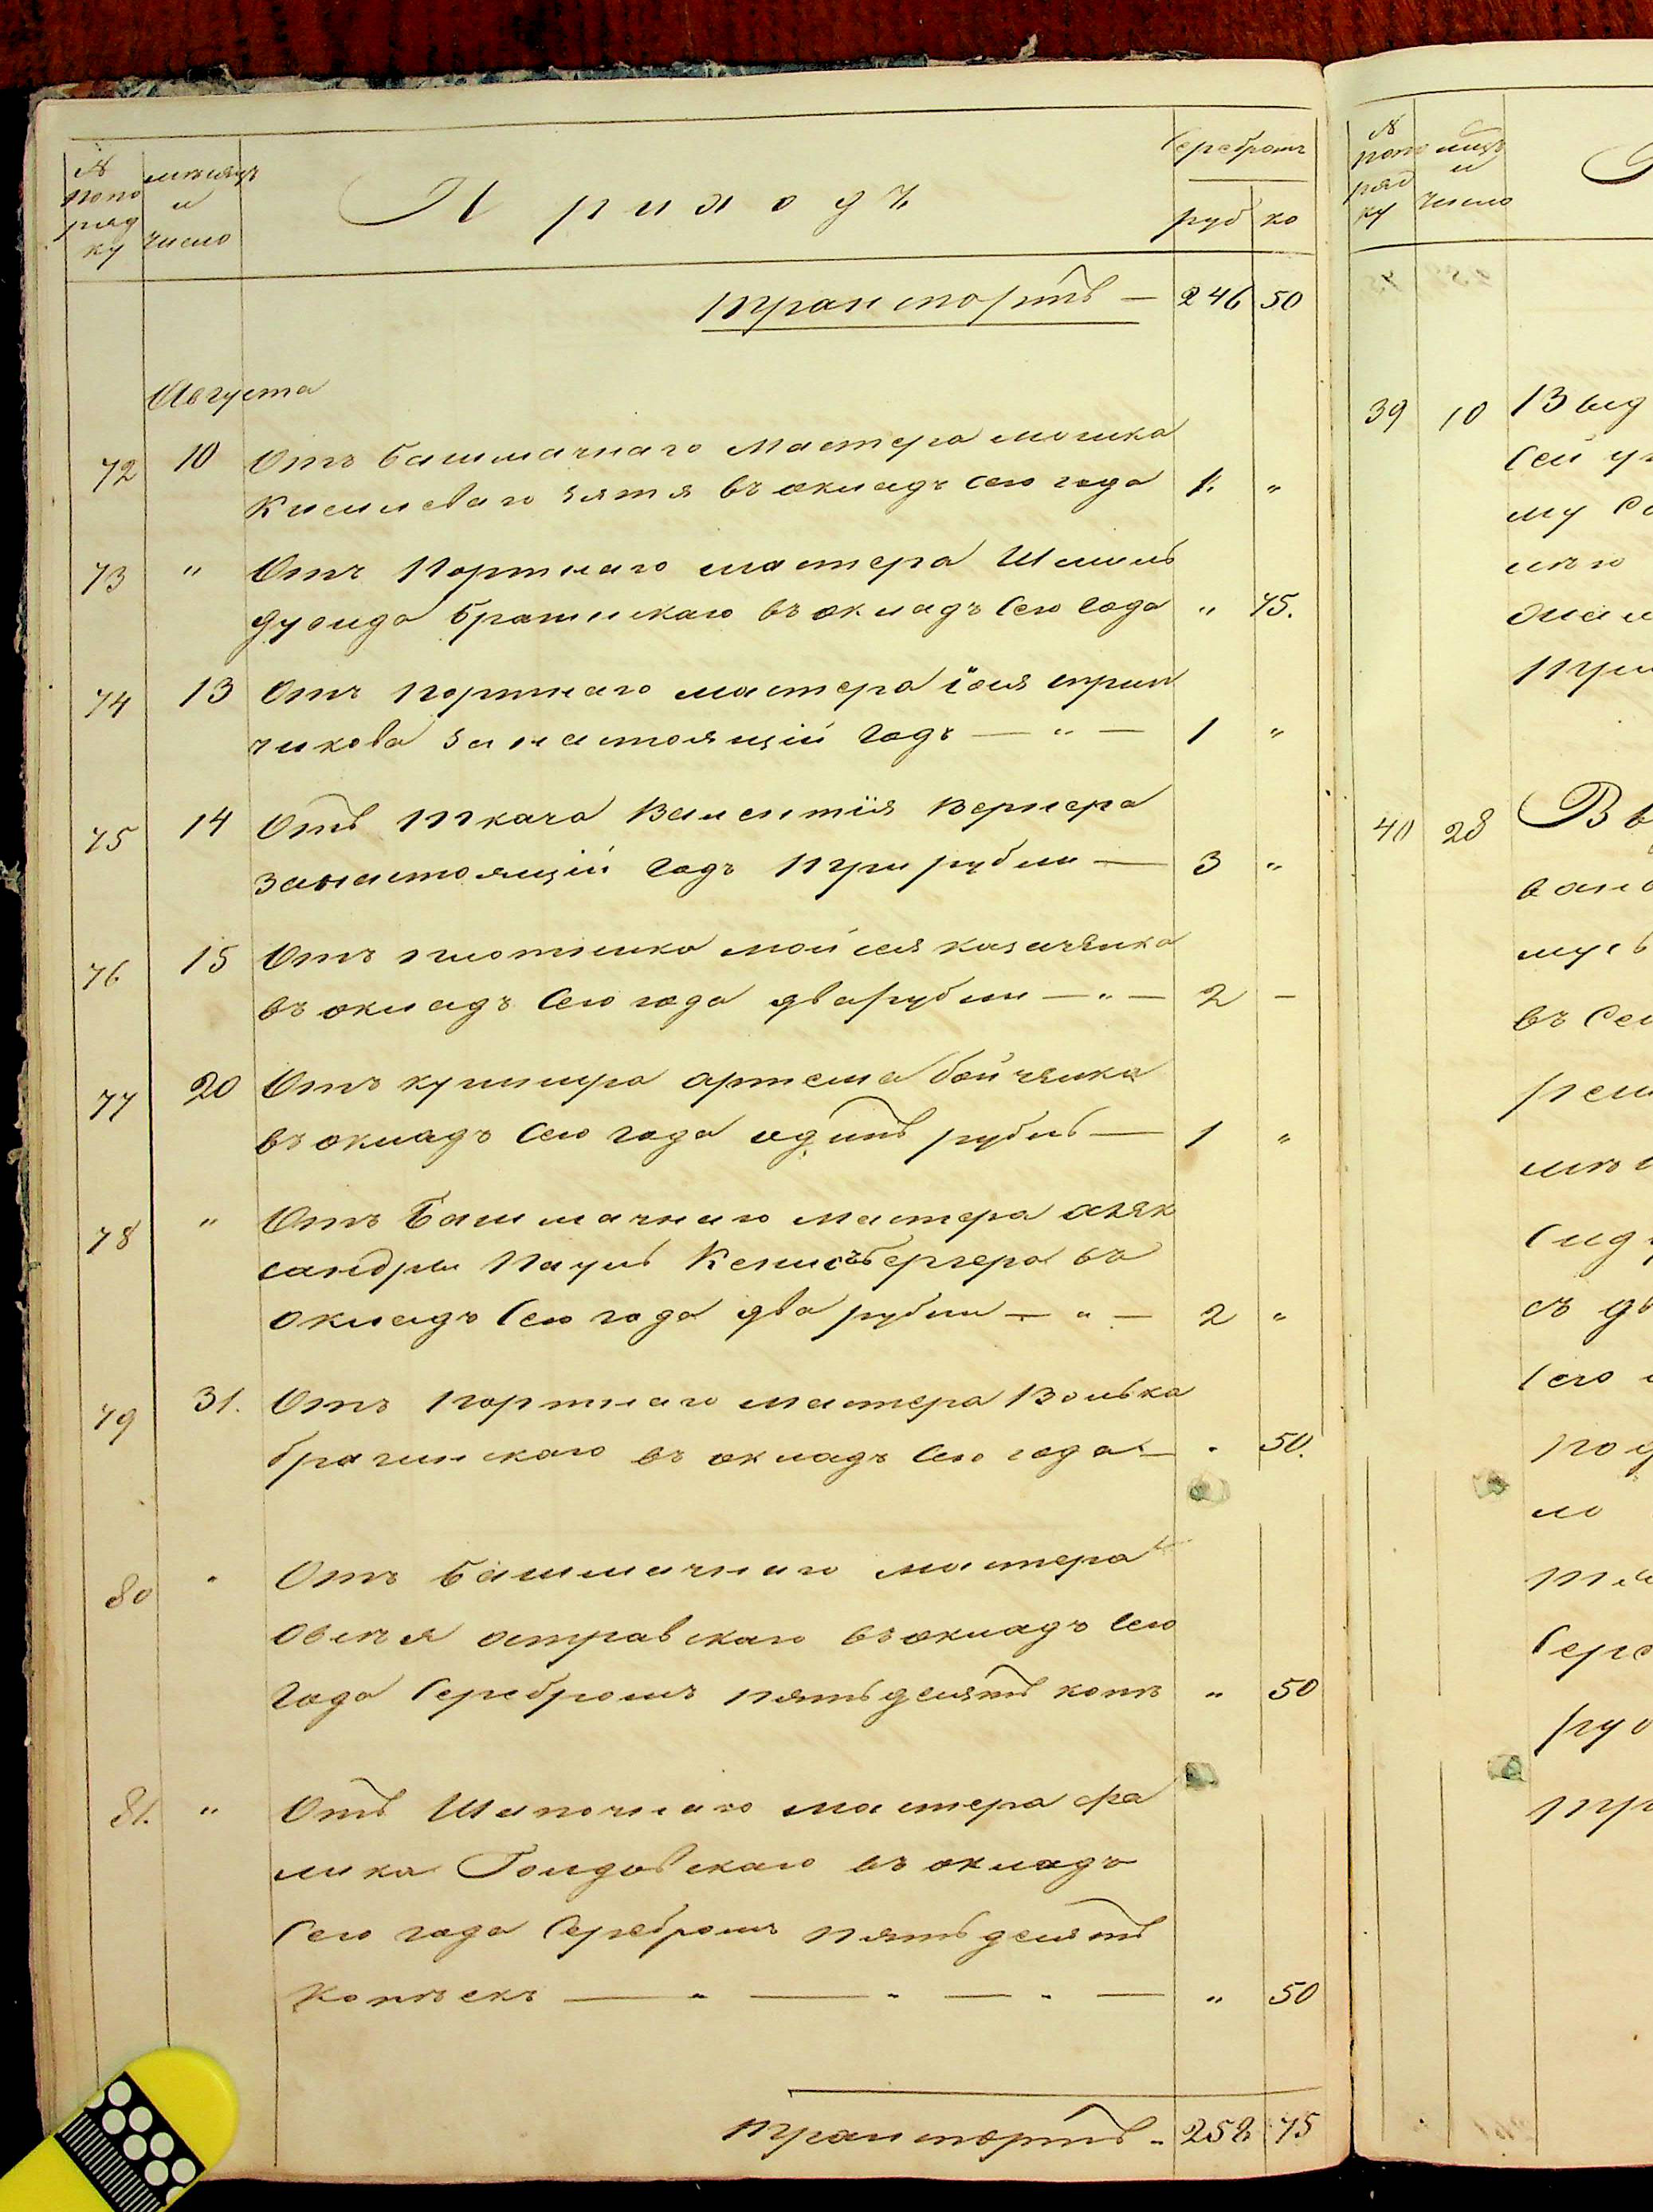 № попо ряд ку
мѣсяцъ и число
Приходъ
Серебромъ
руб ко
транспортъ — 246 50
Августа
72 10 Отъ башмачнаго мастера мошка
Киселеваго зятя въ окладъ сего года 1. "
73 " Отъ Портнаго мастера Шмиль
дувида брагинскаго въ окладъ Сего года " 75.
74 13 Отъ портнаго мастера
чикова за настоящій Годъ — " — 1 "
75 14 Отъ Ткача Валентія Вернера
За настоящій Годъ Три рубли — 3 "
76 15 Отъ плотника мойсея казачянка
въ окладъ Сего года два рубли — " — 2 —
77 20 Отъ кушнира артема бойчянка
въ окладъ Сего года одинъ рубль — 1 "
78 " Отъ Башмачнаго мастера аляк
сандры Пауль Кенисъбергера въ
окладъ Сего года два рубли — " — 2 "
79 31. Отъ Портнаго мастера Волька
брагинскаго въ окладъ Сего года — " 50.
80 " Отъ Башмачнаго мастера
Овсѣя островскаго въ окладъ Сего
Года Серебромъ пятьдесятъ копѣ " 50
81. " Отъ Шапочнаго мастера фа
лика Голдовскаго въ окладъ
Сего года Серебромъ пятьдесятъ
Копѣекъ — " — " — " — " 50
транспортъ - 258 75
№ попо ряд ку
мцъ и число
39 10
Сей
му
40 28
въ